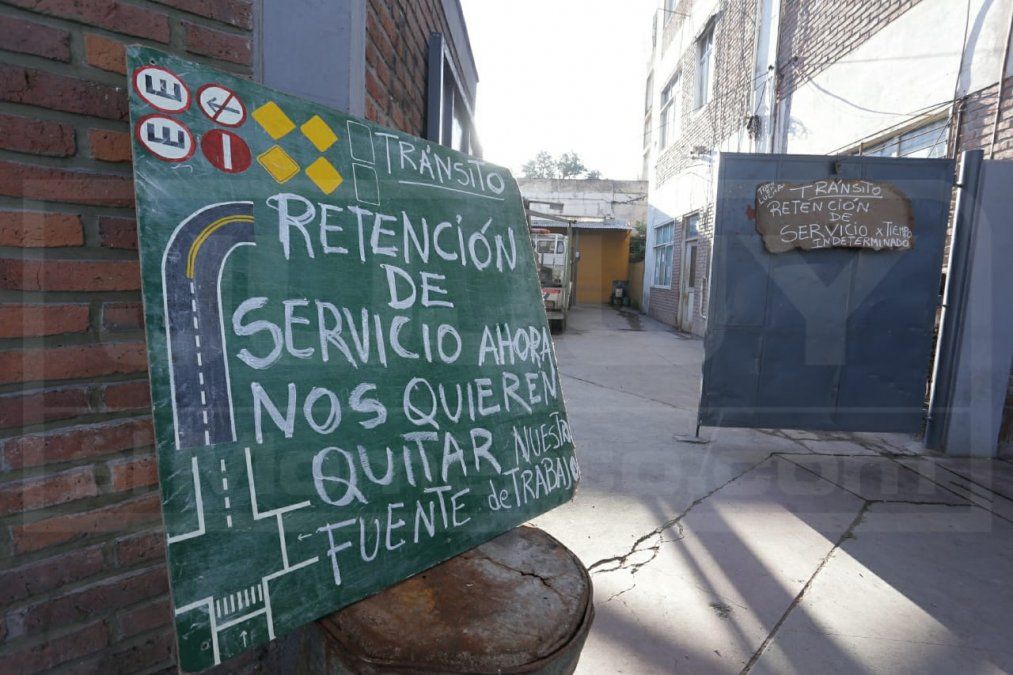 TRÁNSITO
RETENCIÓN
DE
SERVICIO AHORA
NOS QUIEREN
QUITAR NUESTRA
FUENTE de TRABAJO
E
E
TRÁNSITO
RETENCIÓN
DE
SERVICIO x TIEMPO
INDETERMINADO